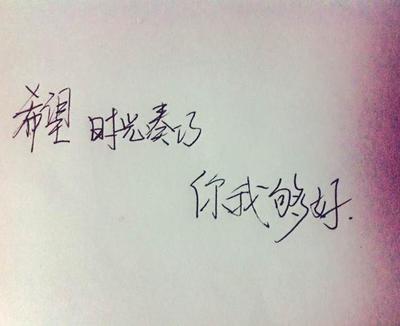 希望时光奏巧
你我够好.